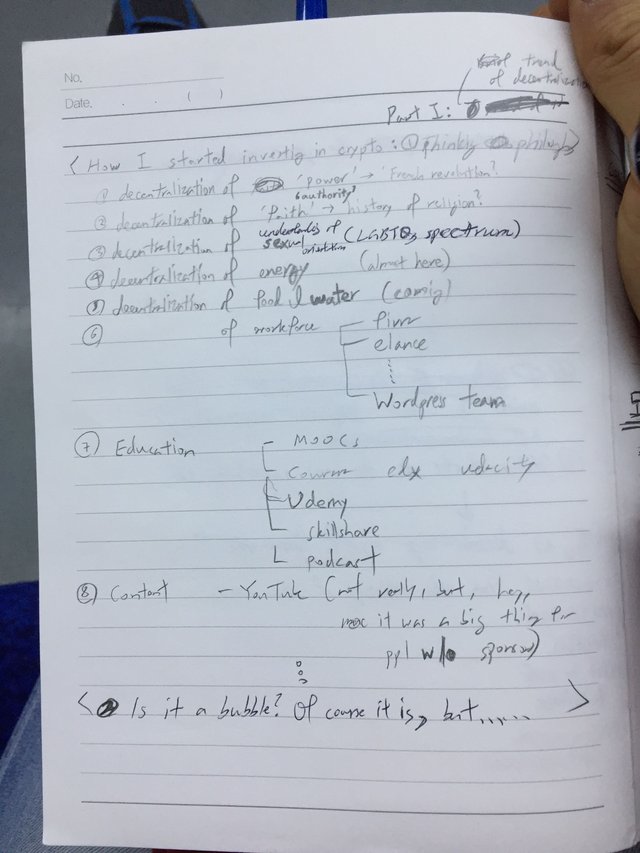 No.
Date. . . ( )
trend
of decentralization
Part I:
< How I started investing in crypto: ① Thinking philosophy >
① decentralization of 'power' → 'French revolution?
authority?
② decentralization of 'faith' → history of religion?
③ decentralization of understanding of sexual orientation (LGBTQ, spectrum)
④ decentralization of energy (almost here)
⑤ decentralization of food & water (coming)
⑥ of workforce - Fiverr
- elance
⋮
- Wordpress team
⑦ Education - MOOCs
- Coursera edx udacity
- Udemy
- skillshare
- podcast
⑧ Content - YouTube (not really, but, hey,
it was a big thing for
ppl w/o sponsor)
⋮
< Is it a bubble? Of course it is, but...... >